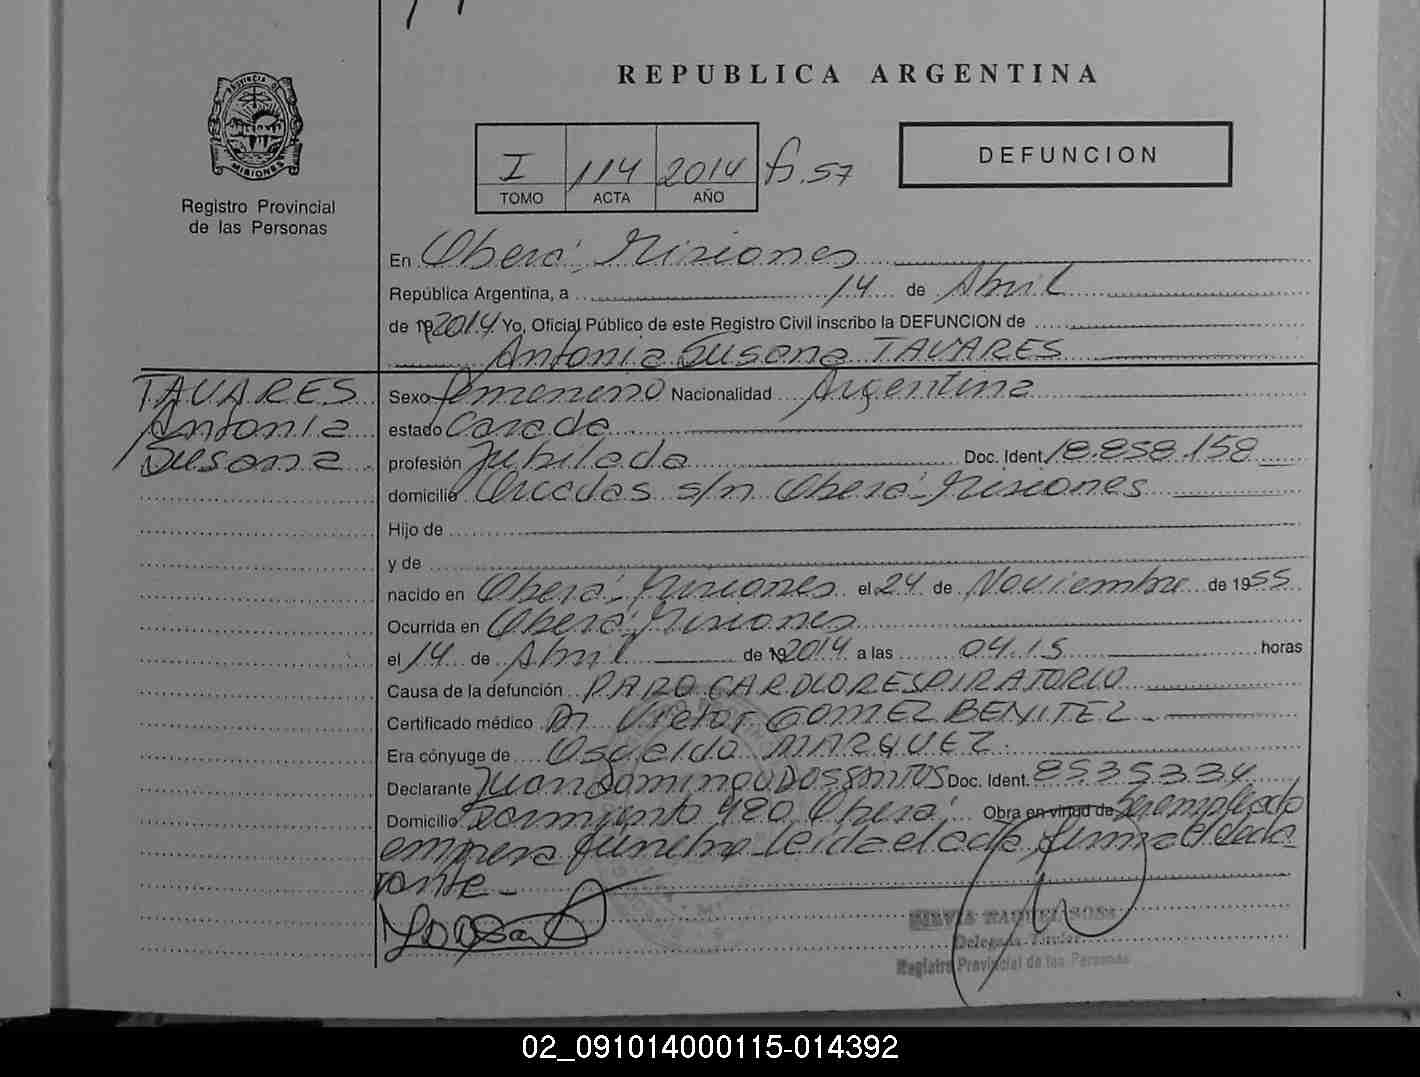 REPUBLICA ARGENTINA
PROVINCIA DE
MISIONES
Registro Provincial
de las Personas
I 114 2014 fs. 57
TOMO ACTA AÑO
DEFUNCION
En Oberá, Misiones
República Argentina, a 14 de Abril
de 2014 Yo, Oficial Público de este Registro Civil inscribo la DEFUNCION de
Antonia Susana TAVARES
TAVARES
Antonia
Susana
Sexo femenino Nacionalidad Argentina
estado Casada
profesión Jubilada Doc. Ident. 18.858.158
domicilio s/n Oberá, Misiones
Hijo de
y de
nacido en Oberá, Misiones el 24 de Noviembre de 1955
Ocurrida en Oberá, Misiones
el 14 de Abril de 2014 a las 04.15 horas
Causa de la defunción PARO CARDIORESPIRATORIO
Certificado médico Dr Victor GOMEZ BENITEZ
Era cónyuge de Osvaldo MARQUEZ
Declarante Juan Domingo DOSSANTOS Doc. Ident. 8535334
Domicilio Sarmiento 480 Oberá Obra en virtud de Ser empleado
empresa funebre Leida el acta firma el decla
rante
SILVIA RAQUEL SOSA
Delegada Titular
Registro Provincial de las Personas
02_091014000115-014392